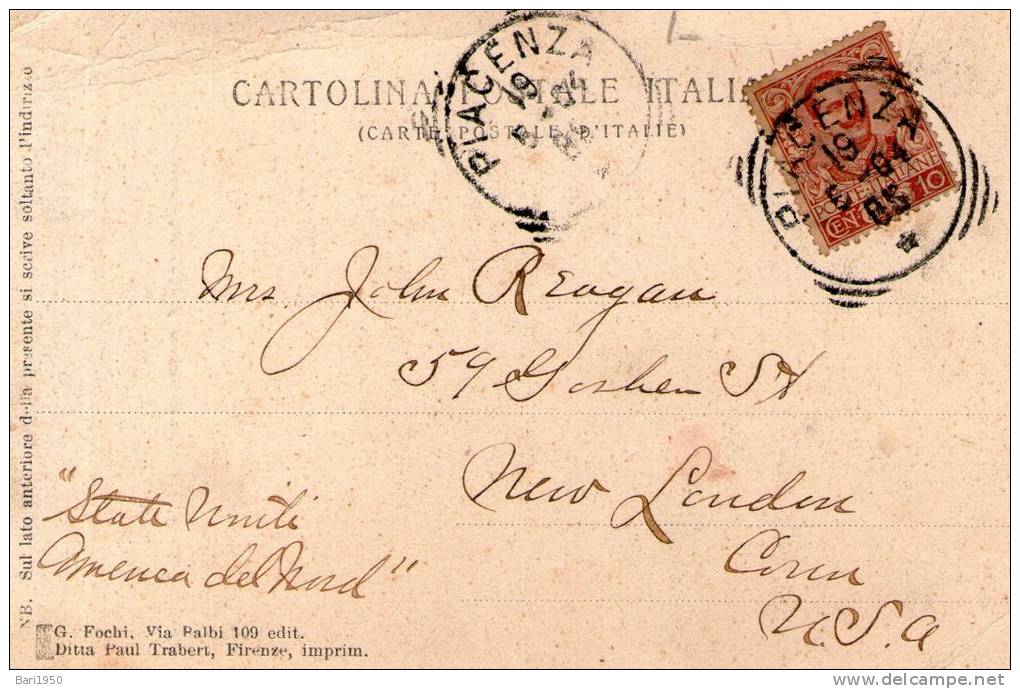 CARTOLINA POSTALE ITALIA
(CARTE POSTALE D'ITALIE)
PIACENZA
19
PIACENZA
19
05
POSTE ITALIANE
CENT 10
Mrs John Reagan
59 Goshen St
New London
Conn
U.S.A
"Stati Uniti
America del Nord"
NB. Sul lato anteriore della presente si scrive soltanto l'indirizzo
G. Fochi, Via Balbi 109 edit.
Ditta Paul Trabert, Firenze, imprim.
Bari1950
www.delcampe.net